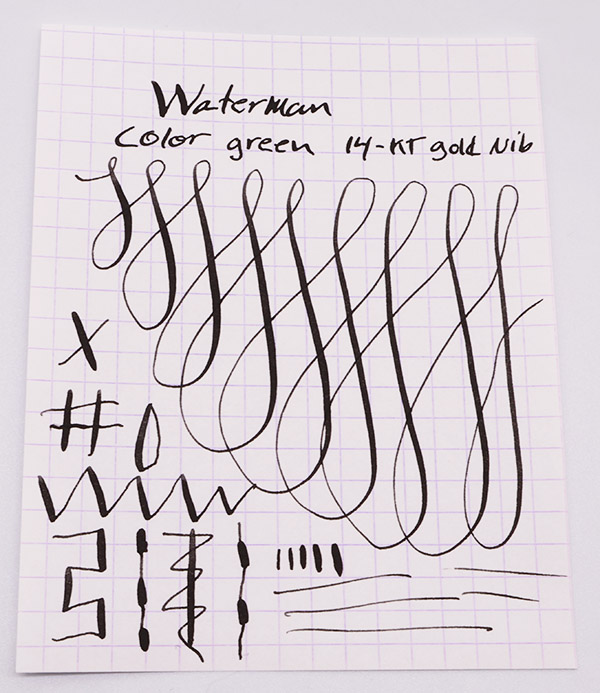 Waterman
Color green 14-KT gold Nib
x
#